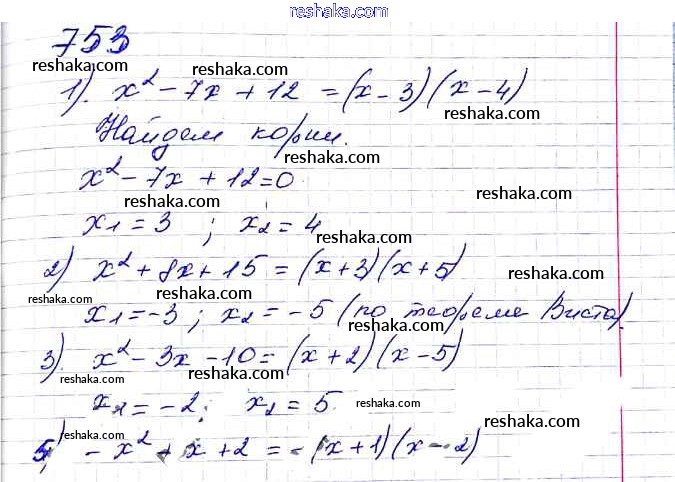 reshaka.com
753
reshaka.com reshaka.com reshaka.com
1). x² - 7x + 12 = (x - 3)(x - 4)
reshaka.com
Найдем корни.
reshaka.com
x² - 7x + 12 = 0
reshaka.com reshaka.com
x₁ = 3 ; x₂ = 4
reshaka.com
2) x² + 8x + 15 = (x + 3)(x + 5)
reshaka.com reshaka.com
x₁ = -3 ; x₂ = -5 (по теореме Виета)
reshaka.com
3). x² - 3x - 10 = (x + 2)(x - 5)
reshaka.com reshaka.com
x₁ = -2 ; x₂ = 5.
reshaka.com reshaka.com
5) - x² + x + 2 = -(x + 1)(x - 2)
reshaka.com reshaka.com